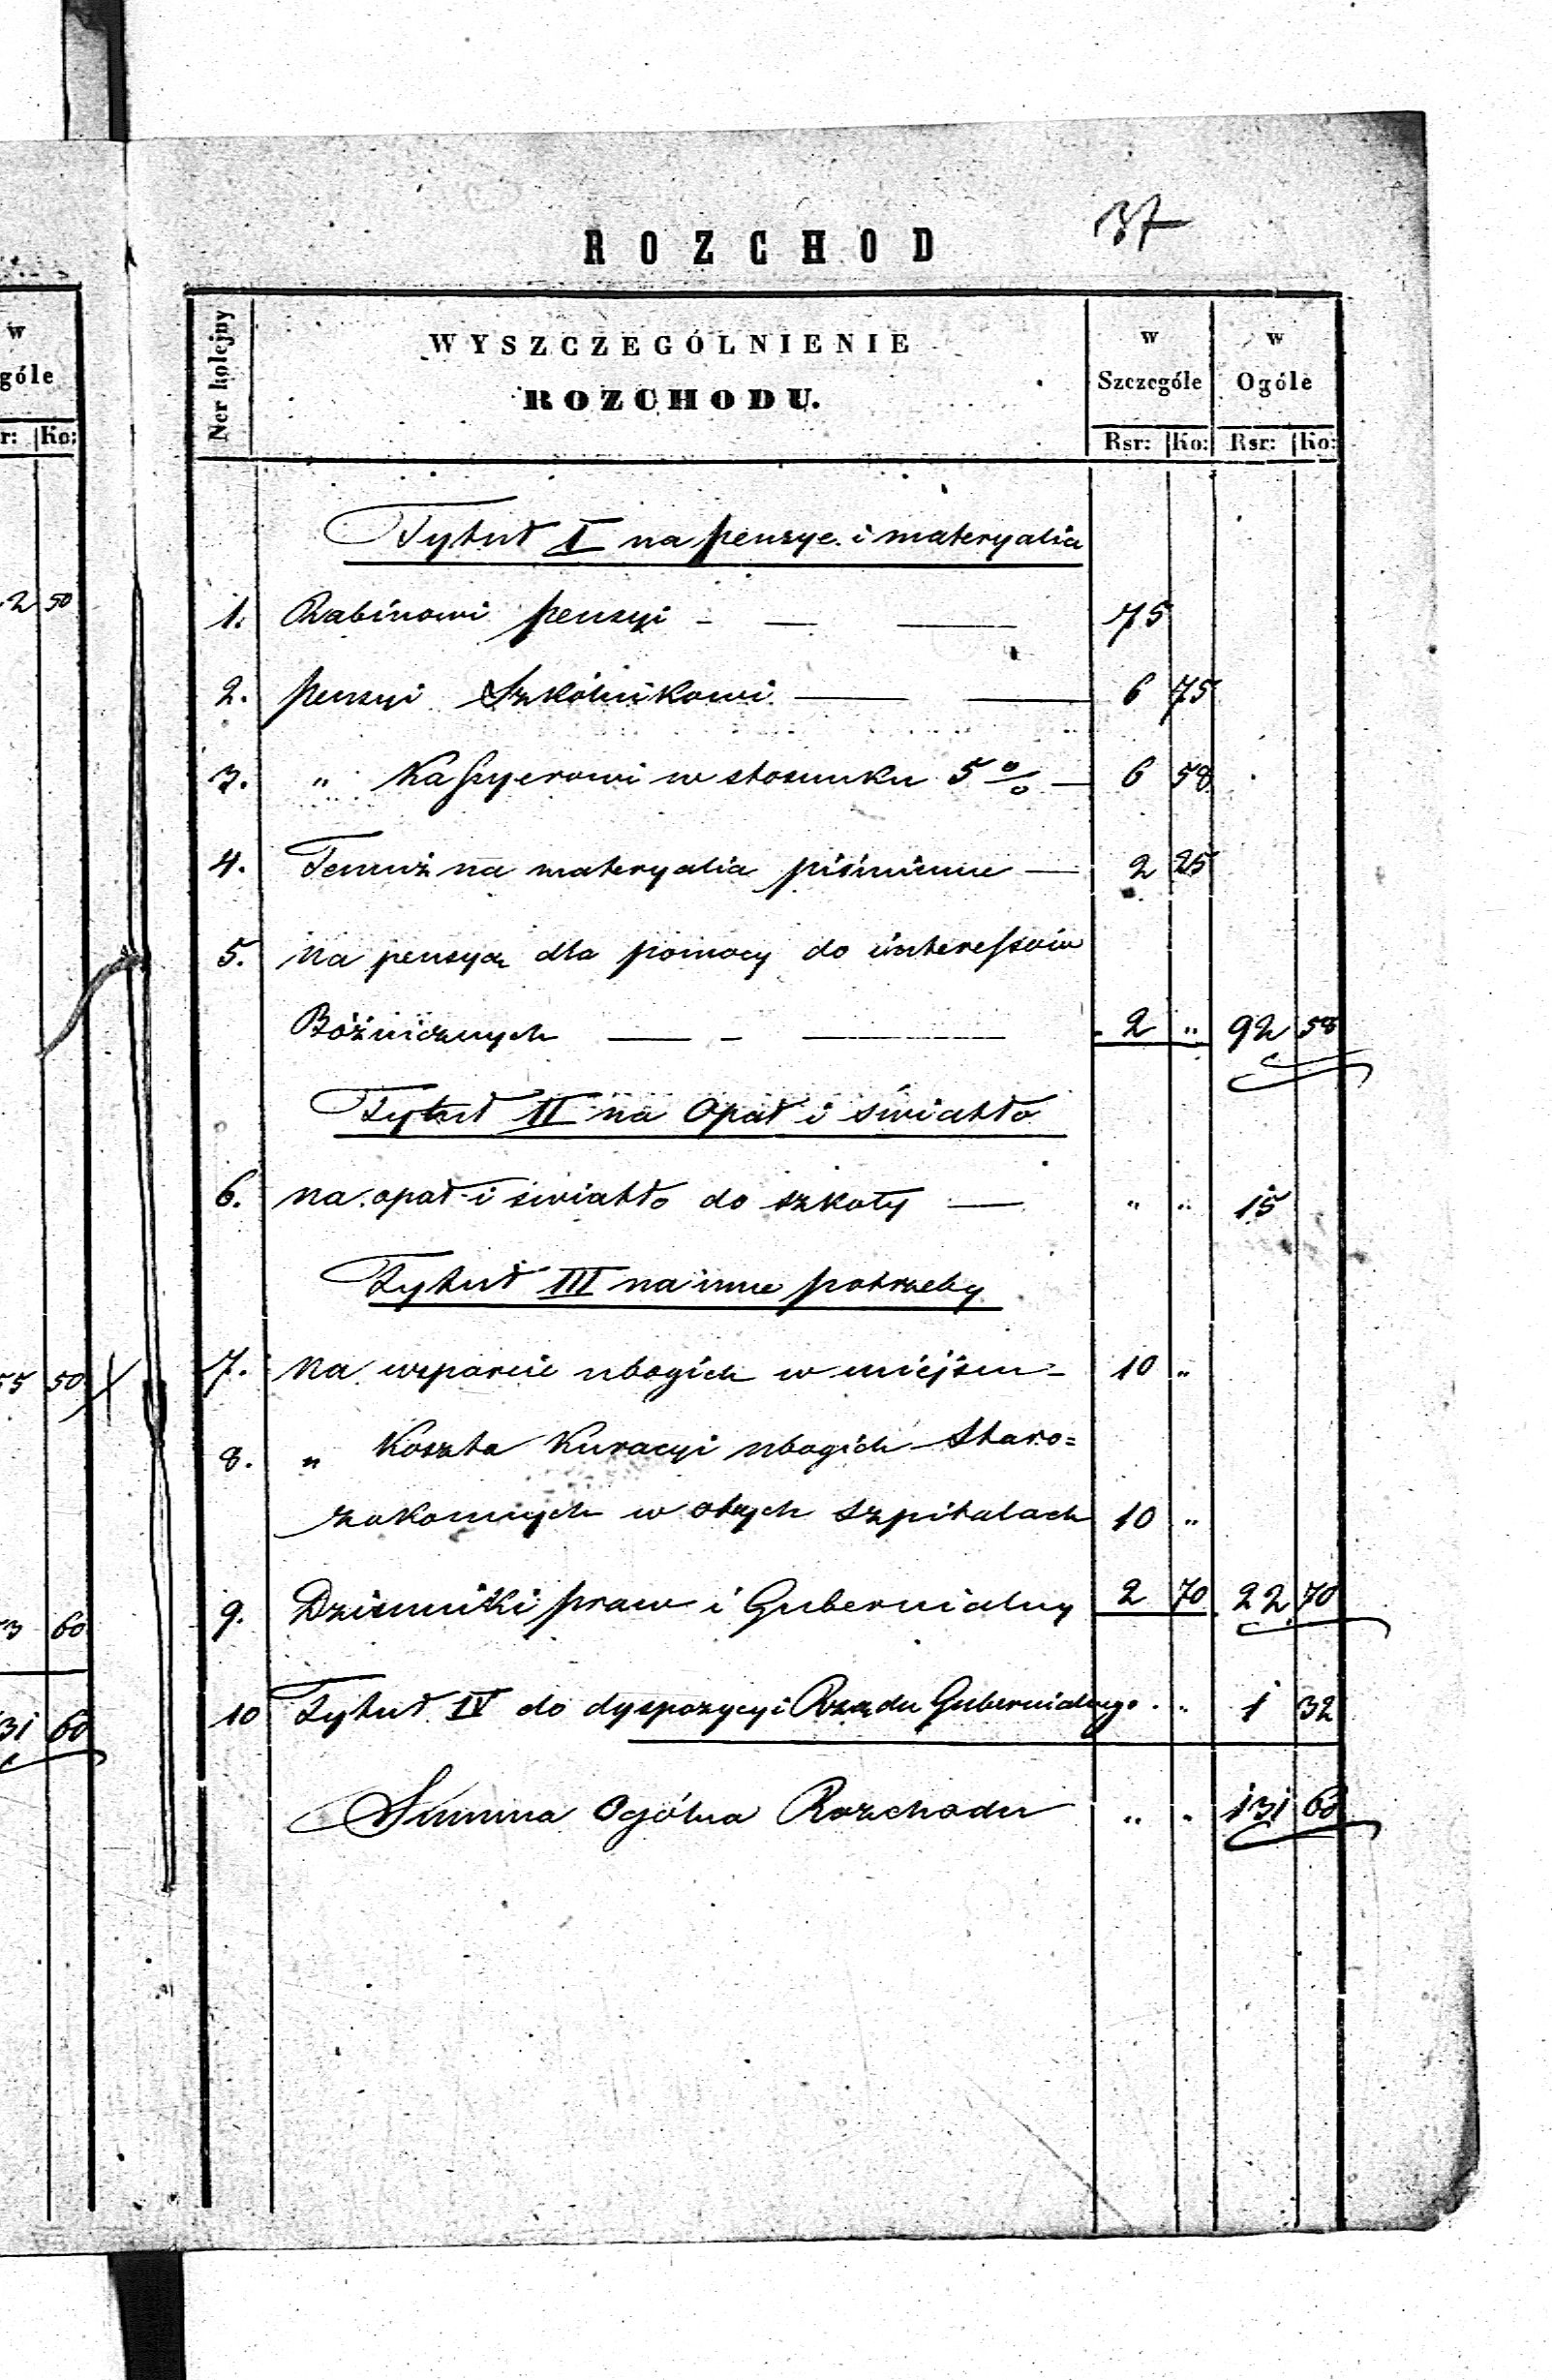 37
ROZCHOD
w
góle
r: Ko:
2 50
55 50
3 60
31 60
Ner kolejny
WYSZCZEGÓLNIENIE
ROZCHODU.
w Szczególe
w Ogóle
Rsr: Ko: Rsr: Ko:
Tytuł I na pensye i materyalia
1. Rabinowi pensyi - — — 75
2. pensyi Szkólnikowi — — 6 75
3. " Kassyerowi w stosunku 5 % — 6 58
4. Temuż na materyalia piśmienne — 2 25
5. na pensyą dla pomocy do interessów
Bóżnicznych — - — 2 " 92 58
Tytuł II na Opał i światło
6. na opał i światło do szkoły — " " 15
Tytuł III na inne potrzeby
7. na wsparcie ubogich w miejscu - 10 "
8. " Koszta Kuracyi ubogich Staro=
zakonnych w obcych szpitalach 10 "
9. Dzienniki praw i Gubernialny 2 70 22 70
10 Tytuł IV do dyspozycyi Rządu Gubernialnego " " 1 32
Summa Ogólna Rozchodu " " 131 60